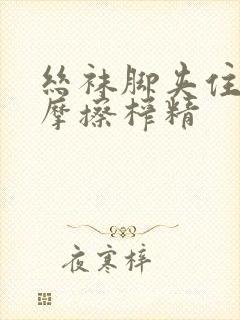 丝袜脚夹住
摩擦榨精
夜寒梓